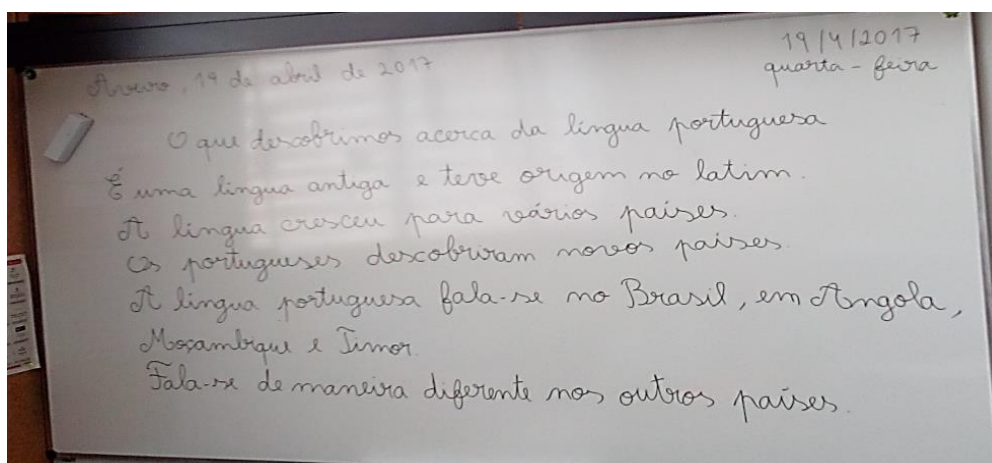 Aveiro, 19 de abril de 2017
19/4/2017
quarta-feira
O que descobrimos acerca da língua portuguesa
É uma língua antiga e teve origem no latim.
A língua cresceu para vários países.
Os portugueses descobriram novos países.
A língua portuguesa fala-se no Brasil, em Angola,
Moçambique e Timor.
Fala-se de maneira diferente nos outros países.